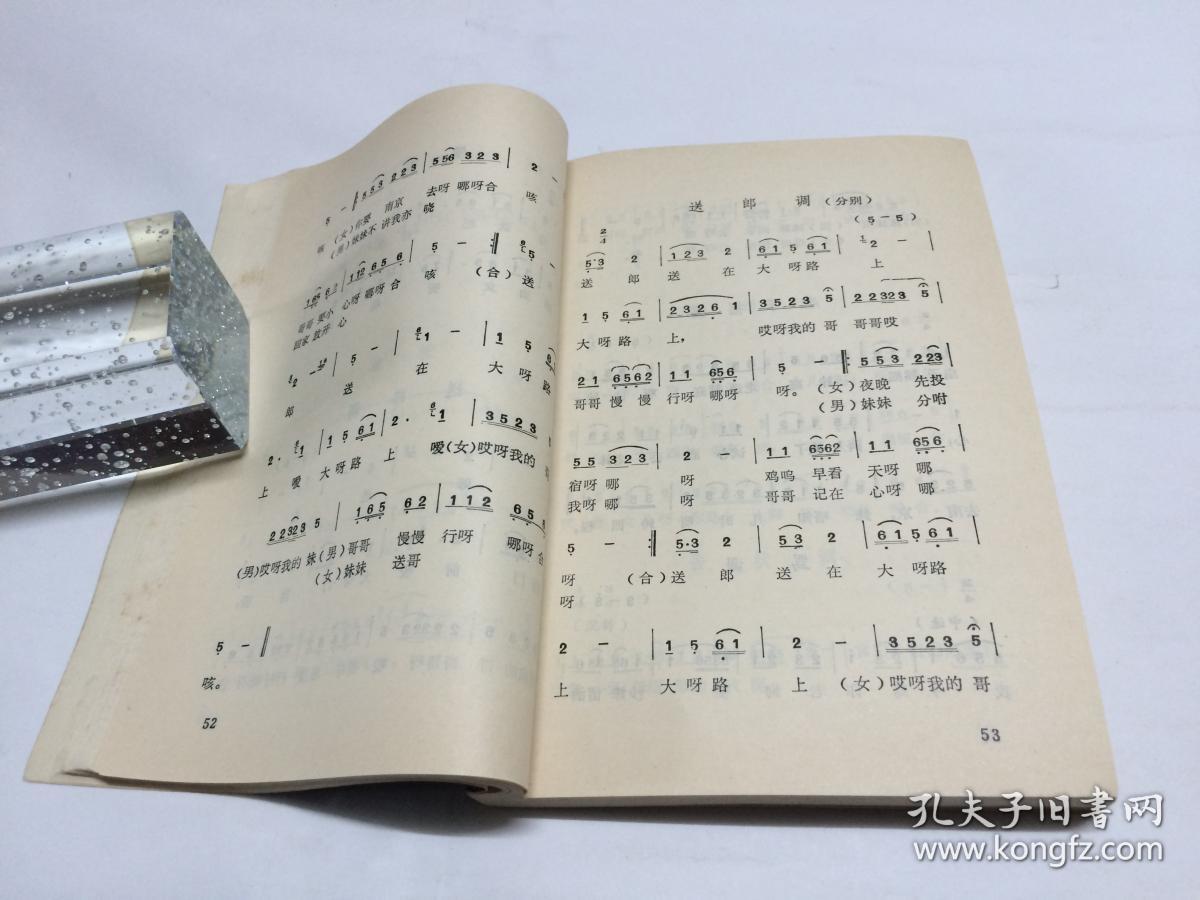 5 - 5 5 3 2 2 3 | 5 5 6 3 2 3 | 2 -
(女)你要 南京 去呀 哪呀合 咳
(男)妹妹不 讲我亦 晓
5 - (合)
哥哥 要小 心呀 嗯呀合 咳 (合)送
回家 放开 心
郎 送 在 大 呀 路
上 嗳 大 呀 路 上 嗳(女)哎呀我的
2 2 3 2 3 5 | 1 6 5 6 2 | 1 1 2 6 5
(男)哎呀我的 妹(男)哥哥 慢慢 行呀 哪呀合
(女)妹妹 送哥
5 - ‖
咳。
52
送 郎 调 (分别)
(5 — 5)
2/4
5·3 2 | 1 2 3 2 | 6 1 5 6 1 | 2 - |
送 郎 送 在 大 呀 路 上
1 5 6 1 | 2 3 2 6 1 | 3 5 2 3 5 | 2 2 3 2 3 5 |
大 呀 路 上, 哎呀我的 哥 哥哥哎
2 1 6 5 6 2 | 1 1 6 5 6 | 5 - 5 5 3 2 2 3 |
哥哥 慢 慢 行呀 哪呀 呀。(女)夜晚 先投
(男)妹妹 分咐
5 5 3 2 3 | 2 - | 1 1 6 5 6 2 | 1 1 6 5 6 |
宿呀 哪 呀 鸡呜 早看 天呀 哪
我呀 哪 呀 哥哥 记在 心呀 哪
5 - 5·3 2 | 5 3 2 | 6 1 5 6 1 |
呀 (合)送 郎 送 在 大 呀路
呀
2 - | 1 5 6 1 | 2 - | 3 5 2 3 5 |
上 大 呀 路 上 (女)哎呀我的 哥
53
孔夫子旧书网
www.kongfz.com